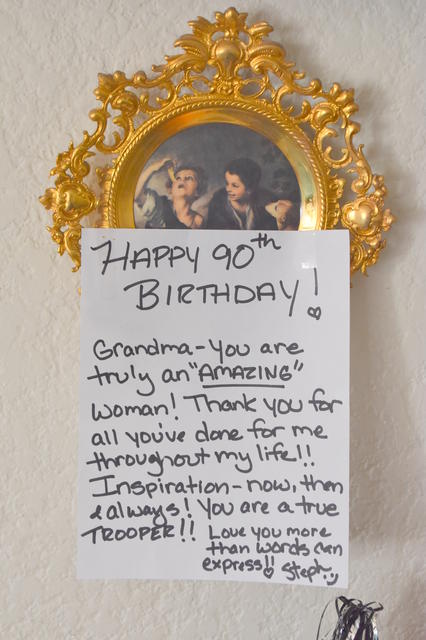 HAPPY 90th
BIRTHDAY!
Grandma - you are
truly an "AMAZING"
woman! Thank you for
all you've done for me
throughout my life!!
Inspiration - now, then
& always! You are a true
TROOPER!! Love you more
than words can
express!! Steph